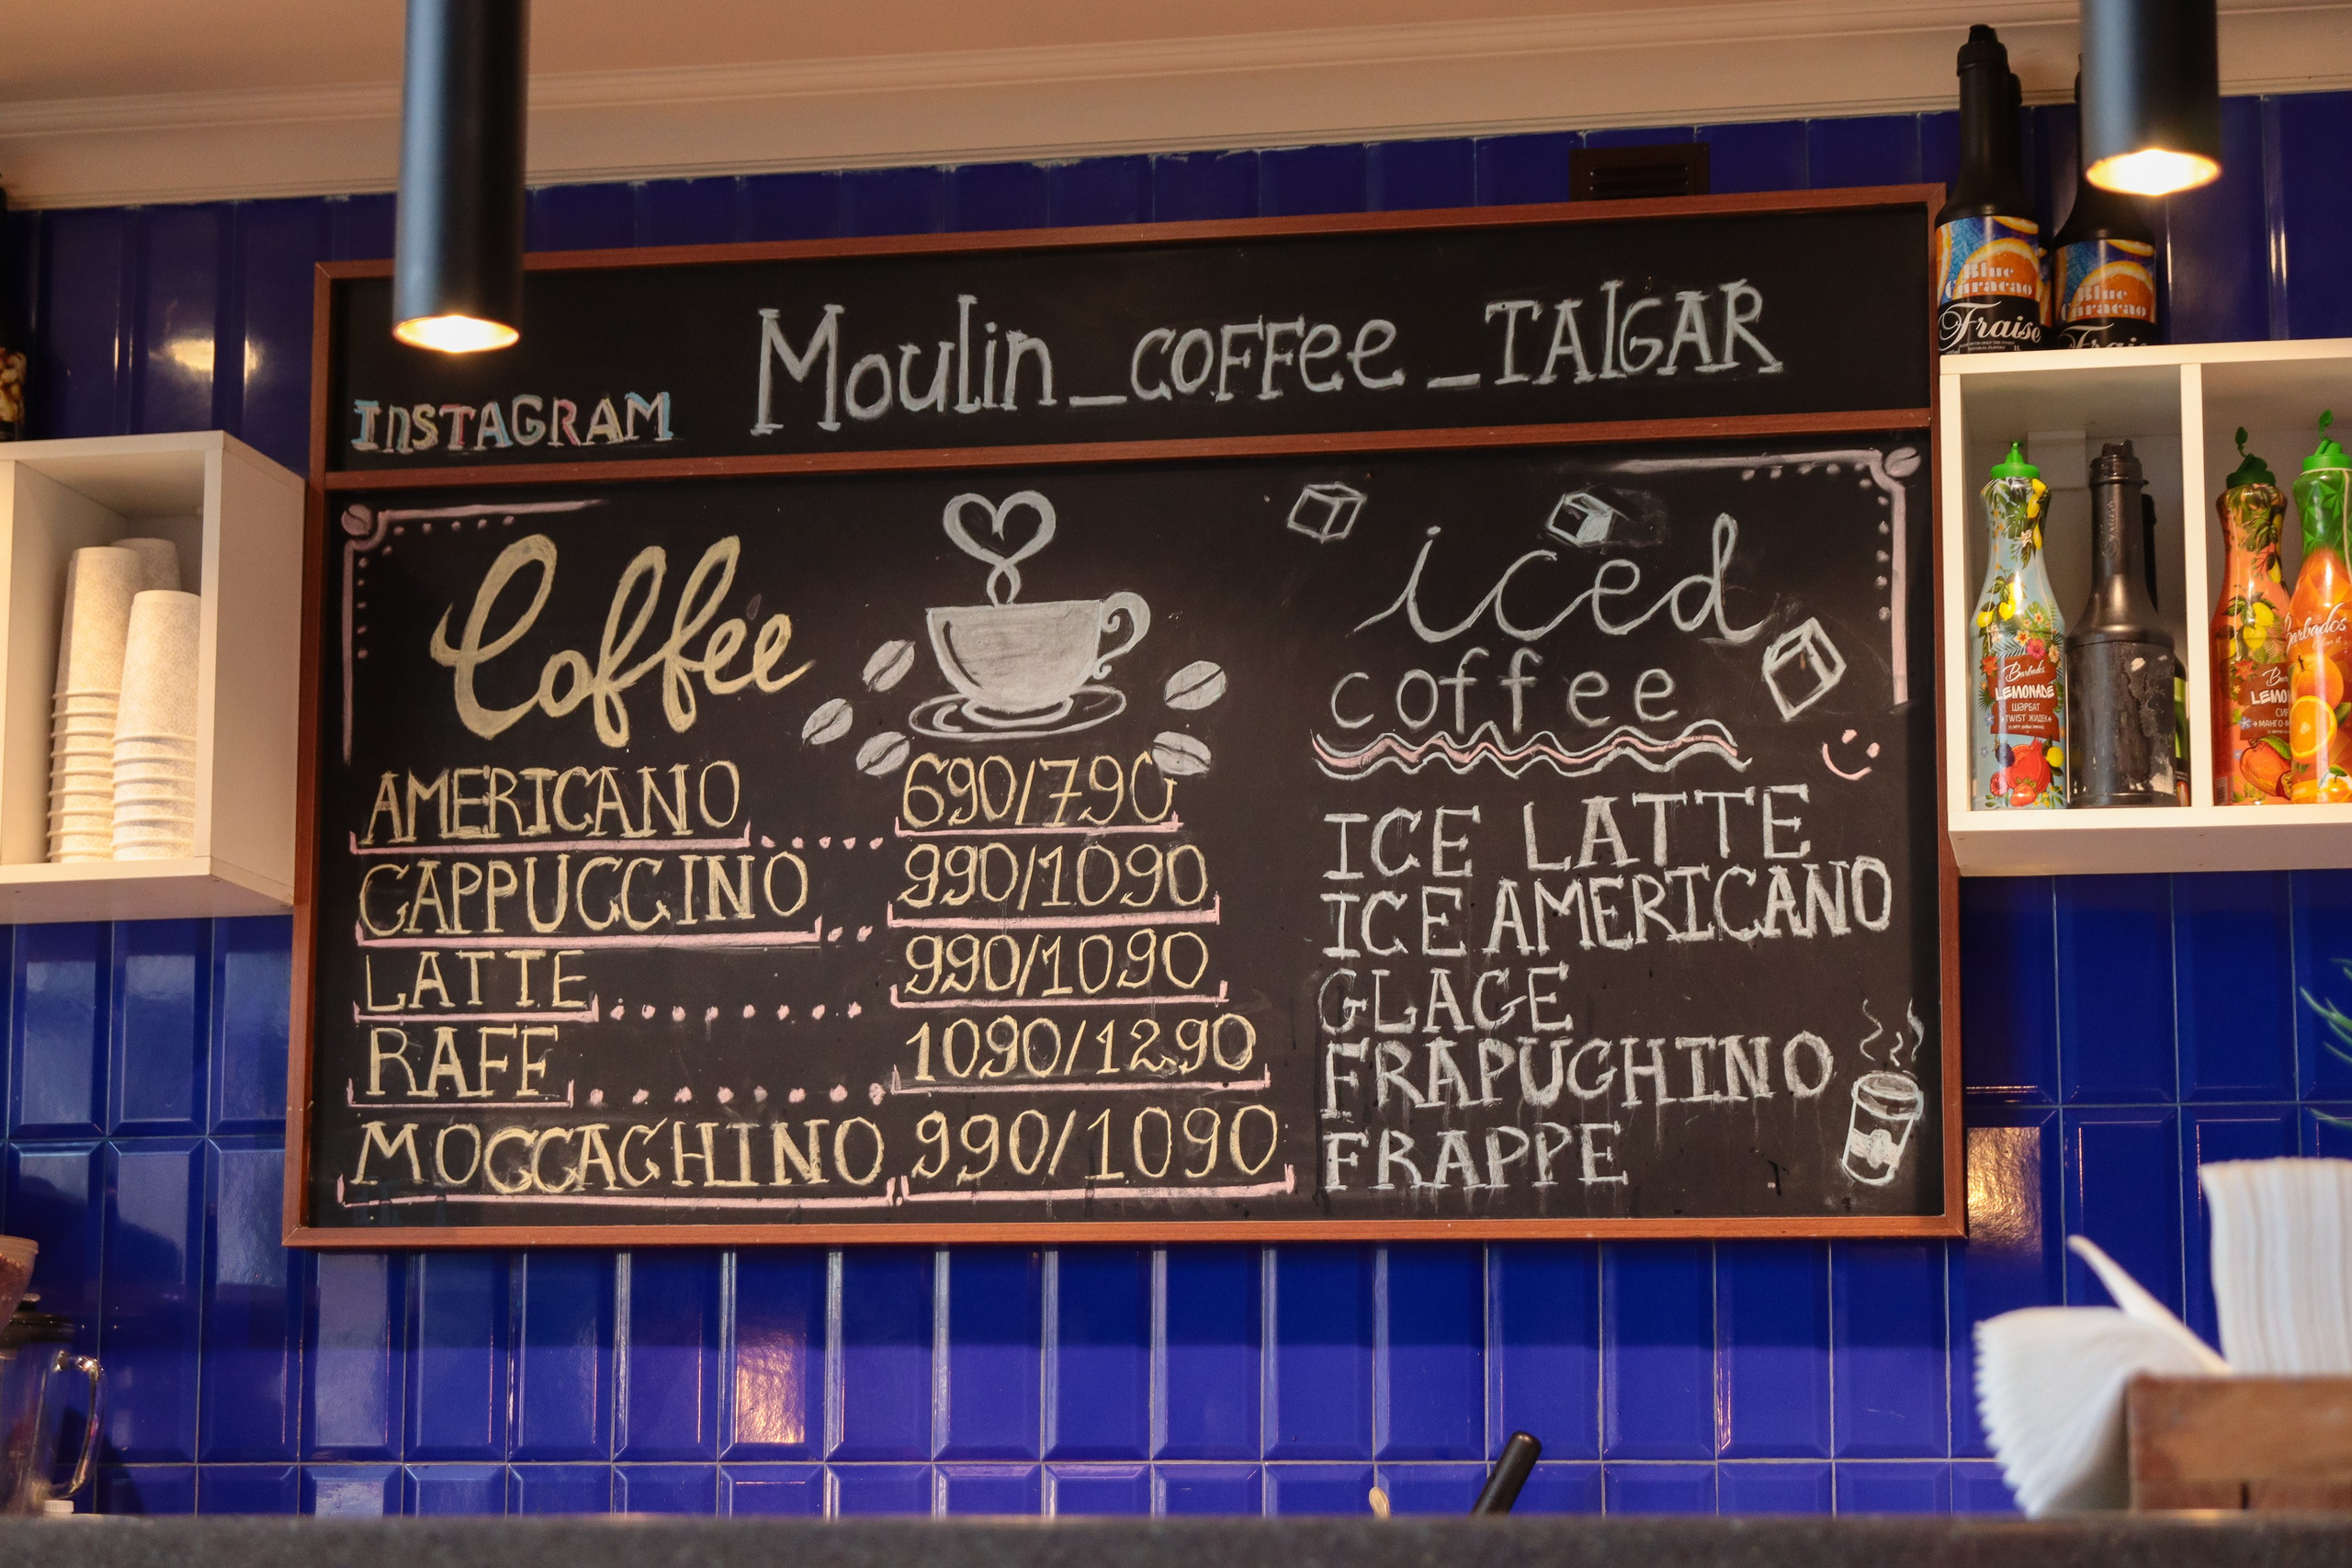 INSTAGRAM Moulin_coffee_TALGAR
Coffee
AMERICANO 690/790
CAPPUCCINO 990/1090
LATTE 990/1090
RAFF 1090/1290
MOCCACHINO 990/1090
iced
coffee
ICE LATTE
ICE AMERICANO
GLACE
FRAPUCHINO
FRAPPE
Blue
Curacao
Fraise
Blue
Curacao
Barbados
LEMONADE
ШӘРБАТ
TWIST ЖИДЕК
Barbados